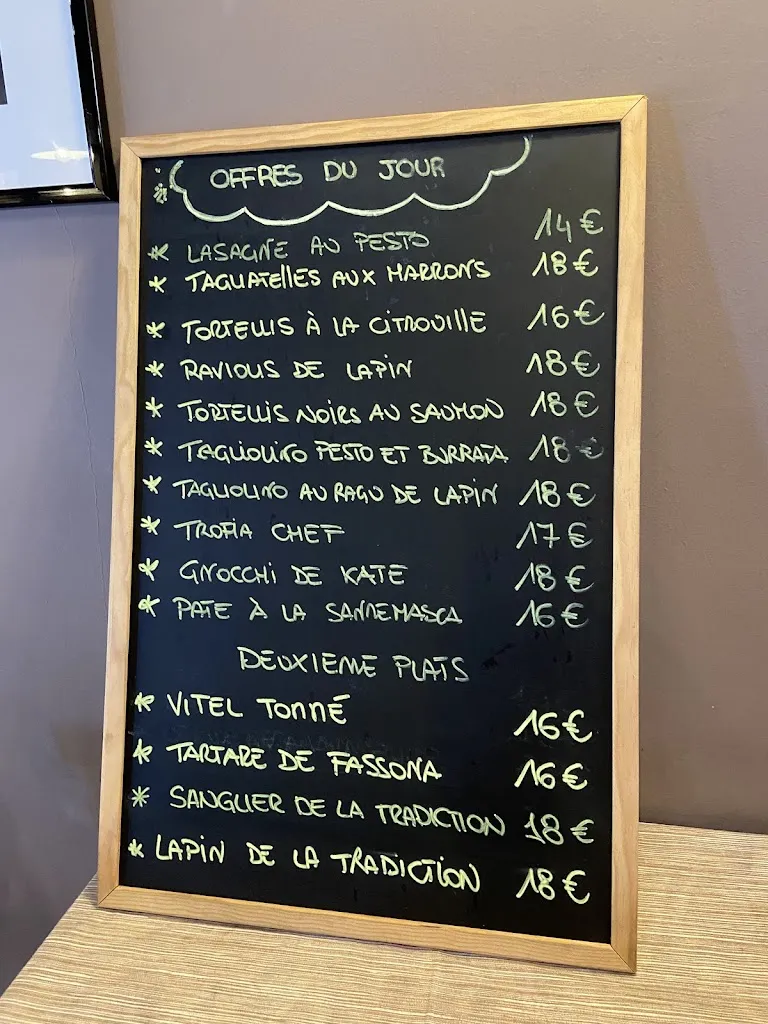 OFFRES DU JOUR
* LASAGNE AU PESTO 14€
* TAGLIATELLES AUX MARRONS 18€
* TORTELLIS À LA CITROUILLE 16€
* RAVIOLIS DE LAPIN 18€
* TORTELLIS NOIRS AU SAUMON 18€
* TAGLIOLINO PESTO ET BURRATA 18€
* TAGLIOLINO AU RAGU DE LAPIN 18€
* TROFIA CHEF 17€
* GNOCCHI DE KATE 18€
* PATE À LA SANREMASCA 16€
DEUXIEME PLATS
* VITEL TONNÉ 16€
* TARTARE DE FASSONA 16€
* SANGLIER DE LA TRADICTION 18€
* LAPIN DE LA TRADICTION 18€